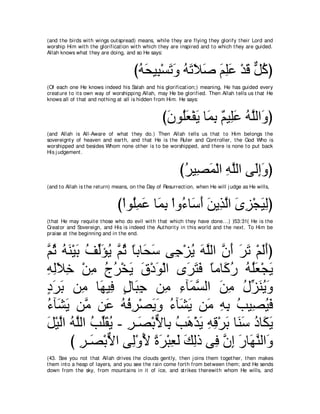 (and the birds with wings outspread) means, while they are flying they glorify their Lord and
worship Him with the glorification with which they are inspired and to which they are guided.
Allah knows what they are doing, and so He says:
(كُلٌّ قَدْ عَلِمَ صَلاَتَهُ وَتَسْبِيحَهُ)
(Of each one He knows indeed his Salah and his glorification;) meaning, He has guided every
creature to its own way of worshipping Allah, may He be glorified. Then Allah tells us that He
knows all of that and nothing at all is hidden from Him. He says:
(وَاللَّهُ عَلِيمٌ بِمَا يَفْعَلُونَ)
(and Allah is All-Aware of what they do.) Then Allah tells us that to Him belongs the
sovereignty of heaven and earth, and that He is the Ruler and Controller, the God Who is
worshipped and besides Whom none other is to be worshipped, and there is none to put back
His judgement.
(وَإِلَى اللَّهِ الْمَصِيرُ)
(and to Allah is the return) means, on the Day of Resurrection, when He will judge as He wills,
(لِيَجْزِىَ الَّذِينَ أَسَاءُواْ بِمَا عَمِلُواْ)
(that He may requite those who do evil with that which they have done...) )53:31( He is the
Creator and Sovereign, and His is indeed the Authority in this world and the next. To Him be
praise at the beginning and in the end.
(أَلَمْ تَرَ أَنَّ اللَّهَ يُزْجِى سَحَاباً ثُمَّ يُؤَلِّفُ بَيْنَهُ ثُمَّ
يَجْعَلُهُ رُكَاماً فَتَرَى الْوَدْقَ يَخْرُجُ مِنْ خِلاَلِهِ
وَيُنَزِّلُ مِنَ السَّمَآءِ مِن جِبَالٍ فِيهَا مِن بَرَدٍ
فَيُصِيبُ بِهِ مَن يَشَآءُ وَيَصْرِفُهُ عَن مَّن يَشَآءُ
يَكَادُ سَنَا بَرْقِهِ يَذْهَبُ بِالاٌّبْصَـرِ - يُقَلِّبُ اللَّهُ الَّيْلَ
وَالنَّهَارَ إِنَّ فِى ذَلِكَ لَعِبْرَةً لاٌّوْلِى الاٌّبْصَـرِ )
(43. See you not that Allah drives the clouds gently, then joins them together, then makes
them into a heap of layers, and you see the rain come forth from between them; and He sends
down from the sky, from mountains in it of ice, and strikes therewith whom He wills, and